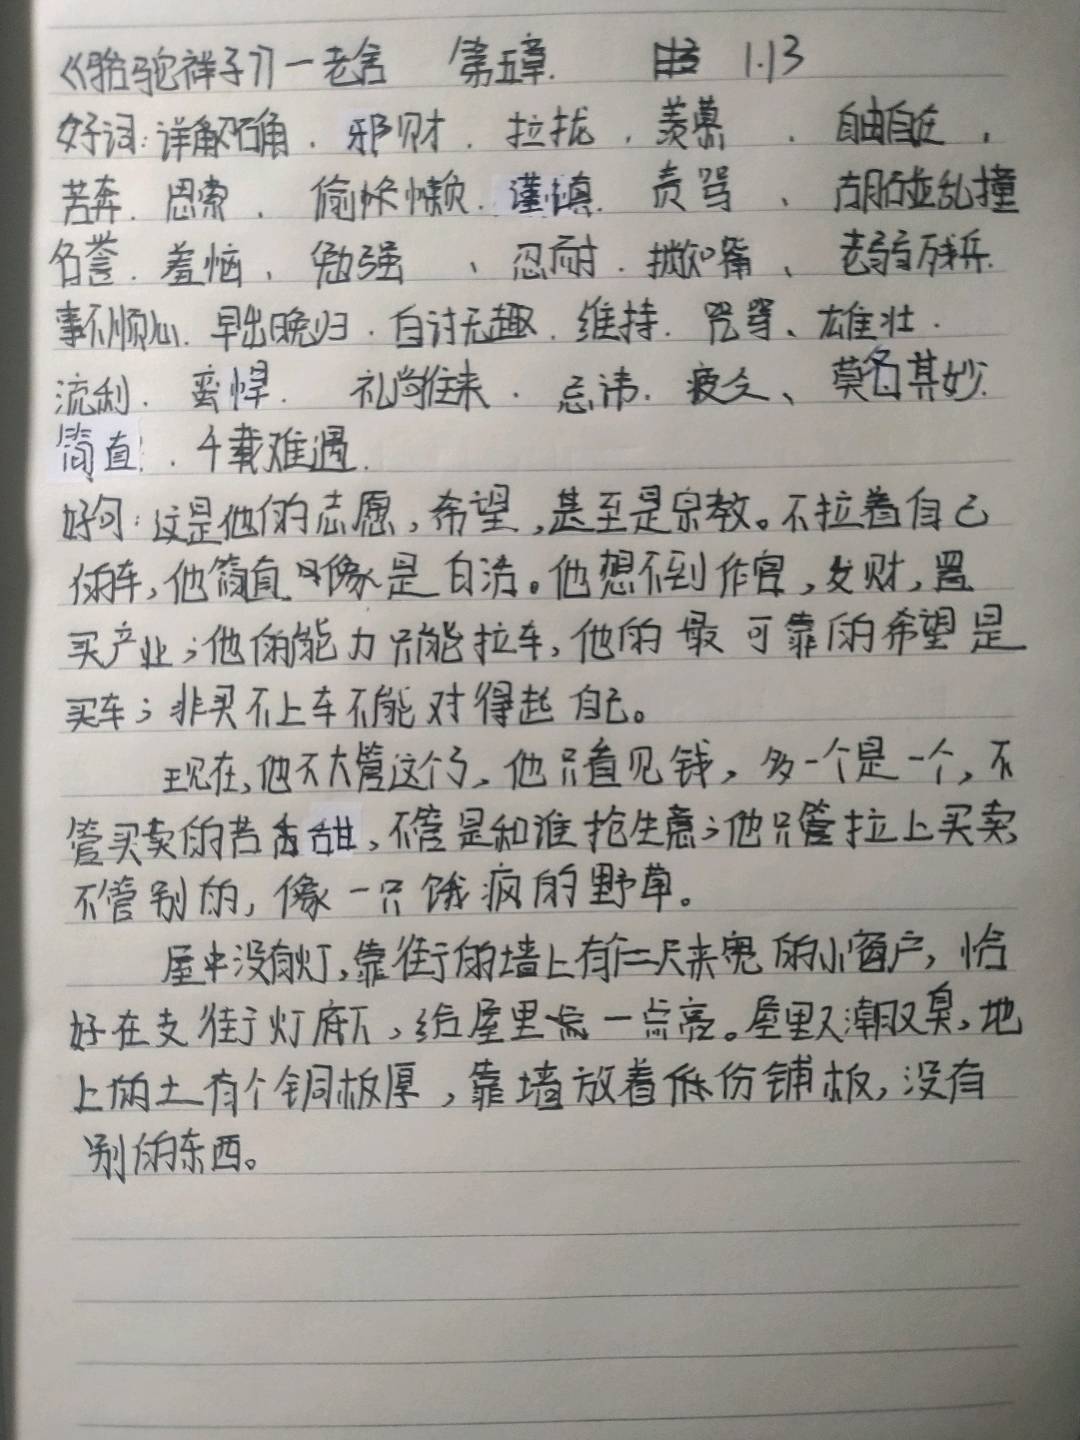 《骆驼祥子》一老舍 第五章. 1.13
好词:详解名确、邪财、拉拢、羡慕、自由自在,
苦奔、思索、偷懒、谨慎、责骂、胡碰乱撞
名誉、羞恼、勉强、忍耐、撇嘴、老弱残兵.
事不顺心、早出晚归、自讨无趣、维持、咒骂、雄壮.
流利、蛮悍、礼尚往来、忌讳、疲乏、莫名其妙.
简直、千载难遇.
好句:这是他的志愿,希望,甚至是宗教。不拉着自己
的车,他简直像是白活。他想不到作官,发财,置
买产业;他的能力只能拉车,他的最可靠的希望是
买车;非买不上车不能对得起自己。
现在,他不大管这个了,他只看见钱,多一个是一个,不
管买卖的苦甜,不管是和谁抢生意;他只管拉上买卖,
不管别的,像一只饿疯的野草。
屋中没有灯,靠街的墙上有仨尺来宽的小窗户,恰
好在支街灯底下,给屋里一点亮。屋里又潮又臭,地
上的土有个铜板厚,靠墙放着份铺板,没有
别的东西。